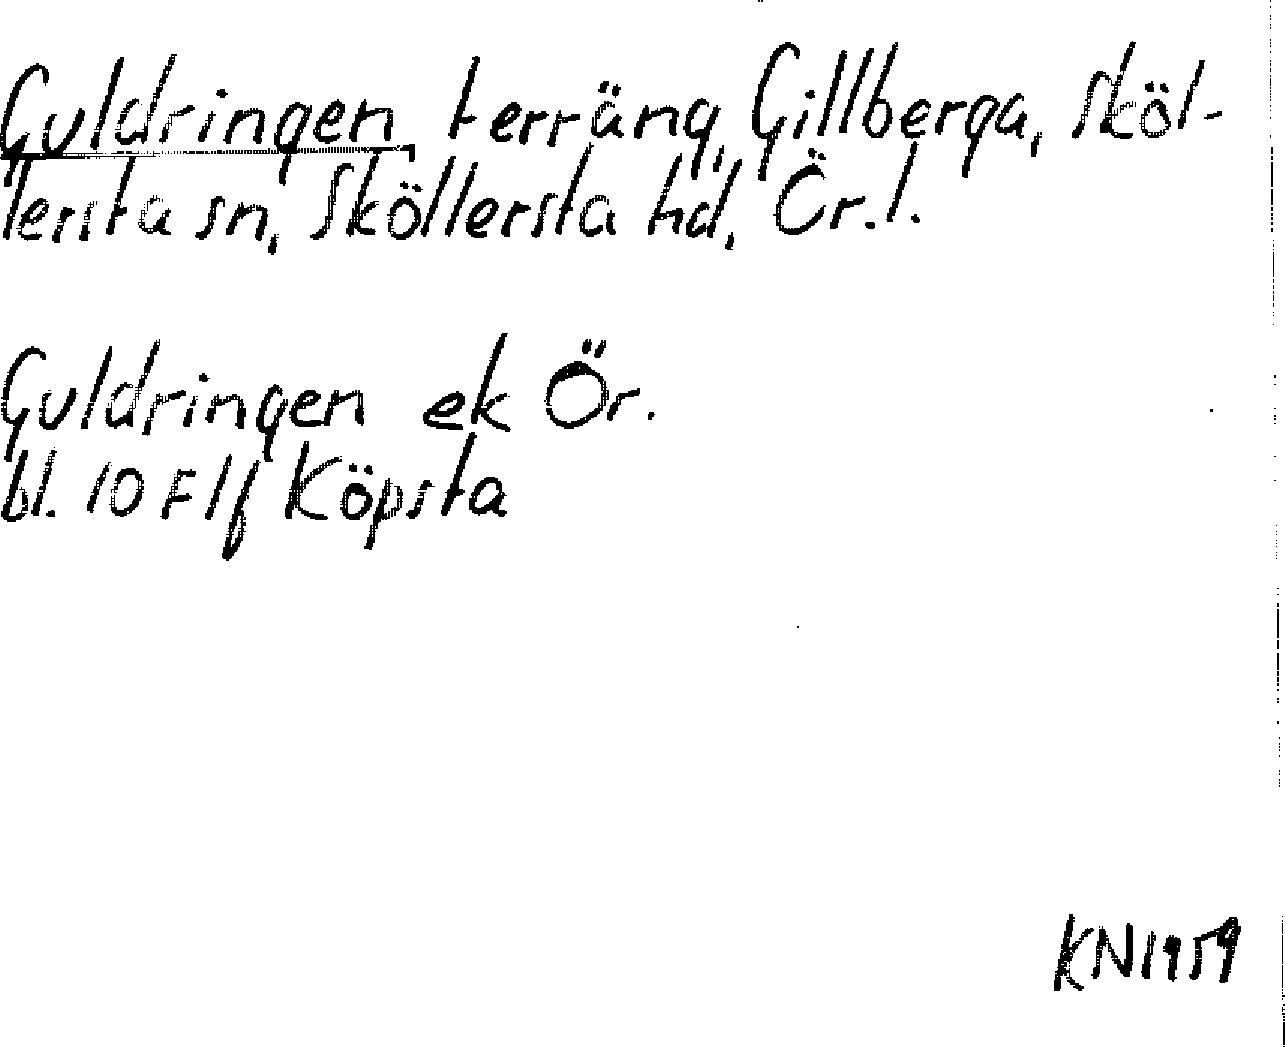 Guldringen, terräng, Gillberga, Sköl-
lersta sn, Sköllersta hd, Ör.l.
Guldringen ek Ör.
bl. 10 F 1f Köpsta
KN1959